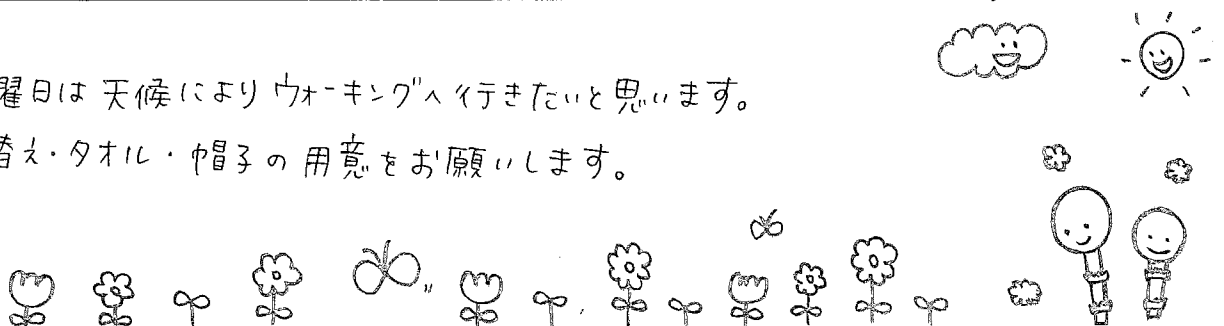 曜日は天候によりウォーキングへ行きたいと思います。
替え・タオル・帽子の用意をお願いします。